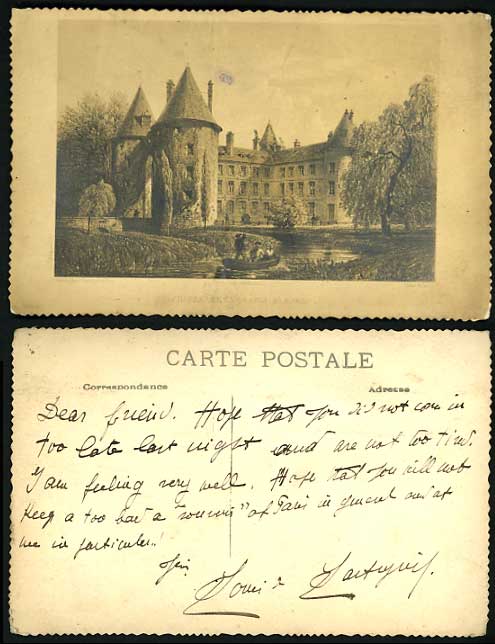 CARTE POSTALE
Correspondance
Adresse
Dear friend. Hope that you did not com in
too late last night and are not too tird.
I am feeling very well. Hope that you will not
Keep a too bad a "souvenir" of Paris in general and of
me in particular!